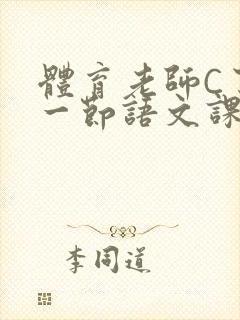 體育老師C
一節語文課
李同道